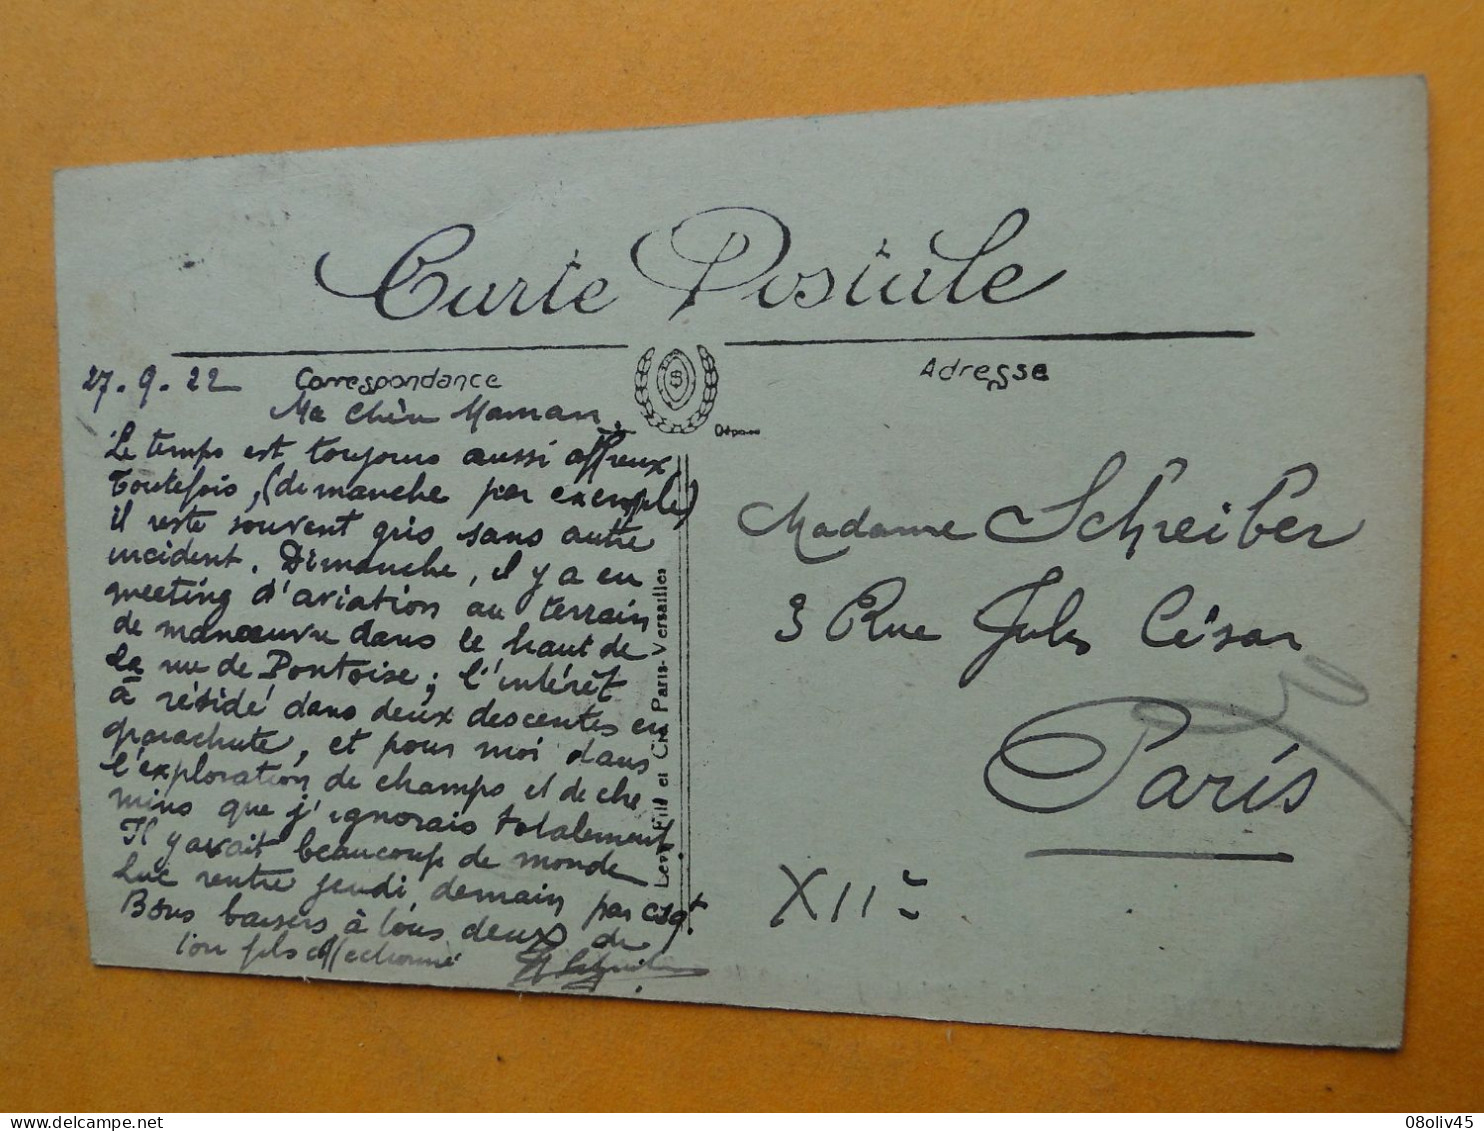 Carte Postale
27.9.22
Correspondance
Ma Chère Maman,
Le temps est toujours aussi affreux
Toutefois, (dimanche par exemple)
il reste souvent gris sans autre
incident. Dimanche, il y a eu
meeting d'aviation au terrain
de manœuvre dans le haut de
la rue de Pontoise; l'intérêt
à résidé dans deux descentes en
parachute, et pour moi dans
l'exploration de champs et de che
mins que j'ignorais totalement.
Il y avait beaucoup de monde
Luc rentre jeudi, demain par
Bons baisers à tous deux de
ton fils affectionné
Levy Fils et Cie Paris-Versailles
Adresse
Madame Schreiber
3 Rue Jules César
Paris
XIIe
08oliv45